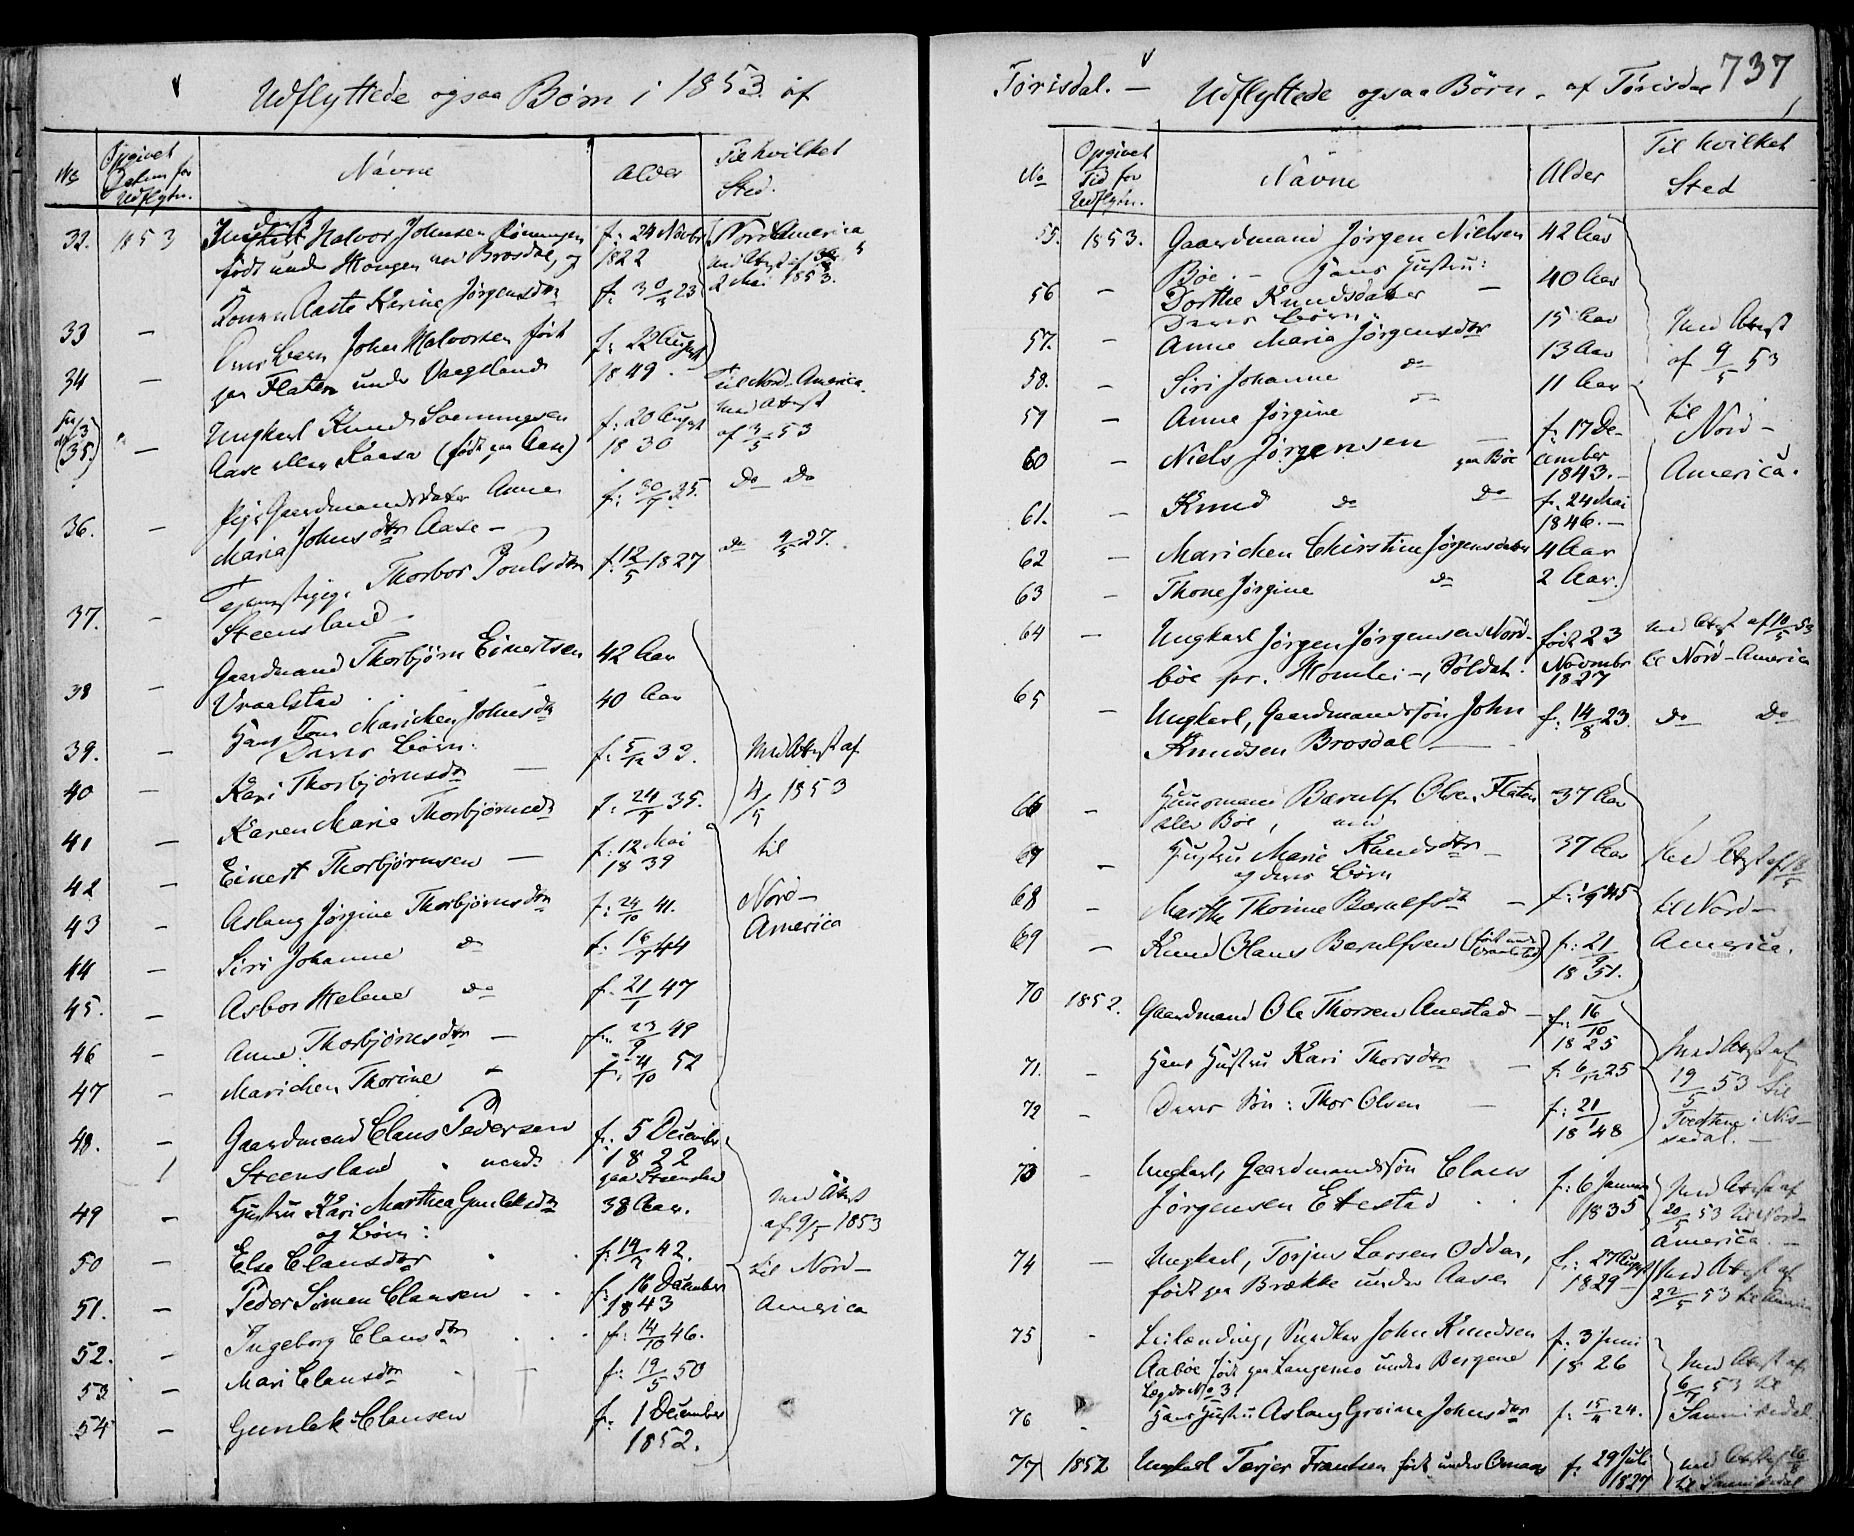 Udflyttede ogsaa Børn i 1853 af
No
Opgivet
Datum for
Udflytn.
Navne
Alder
Til hvilket
Sted.
32. 1853 Halvor Johnsen Rönningen f. 24 Novbr Nord America
født under Haugen ved Brosdal, og 1822 med Attest af
2 Mai 1853.
33 — Konen Aaste Karine Jörgensdtr f. 30/3 23
34 — Deres barn John Halvorsen født f. 22 August
paa Flaten under Vaagsland 1849. Til Nord-America
med Attest
35. — Ungkarl Knud Svenningsen f. 20 August af 3/5 53
Aase eller Kaasa (født paa Aase) 1830
36. — Pige Gaardmandsdatter Anne f. 30/7 25. Do Do
Maria Johnsdtr Aase —
37. — Tjenestepige, Thorbor Poulsdtr f. 12/5 1827 do 9/5 27.
Steensland —
38 — Gaardmand Thorbjörn Einertsen 42 Aar
Vraalstad
39. — Hans Kone Marichen Johnsdtr 40 Aar
Deres Børn:
40 — Kari Thorbjörnsdtr — f. 5/12 32. Med Attest af
41 — Karen Maria Thorbjörnsdtr f. 24/7 35. 4/5 1853
42 — Einert Thorbjörnsen — f. 12 Mai 1839 til
43 — Aslaug Jörgine Thorbjörnsdtr f. 24/10 41. Nord-
44 — Siri Johanne do f. 16/7 44 America
45. — Asbor Helene do f. 21/1 47
46 — Anne Thorbjörnsdtr — f. 23/9 49
47 — Marichen Thorine " f. 4/10 52
48. — Gaardmand Claus Pedersen f. 5 December
Steensland " med 1822
paa Steensland
49 — Hustru Kari Marthea Gunleksdtr 38 Aar. Med Attest
og Børn: af 9/5 1853
50 — Else Clausdtr f. 14/2 42. til Nord-
51. — Peder Simen Clausen f. 16 December 1843 America
52. — Ingeborg Clausdtr f. 14/10 46.
53 — Mari Clausdtr f. 19/5 50
54 — Gunlek Clausen f. 1 December
1852.
Tørisdal. — Udflyttede ogsaa Børn. af Tørisdal 737
No
Opgivet
Tid for
Udflytn.
Navne
Alder
Til hvilket
Sted
55. 1853. Gaardmand Jörgen Nielsen 42 Aar
Böe. — Hans Hustru:
56 — Dorthe Knudsdatter — 40 Aar
Deres Børn:
57. — Anne Maria Jörgensdtr 15 Aar Med Attest
58. — Siri Johanne do 13 Aar af 9/5 53
59 — Anne Jörgine 11 Aar til
60 — Niels Jörgensen paa Böe f. 17 December 1843. — Nord-
61. — Knud do do f. 24 Mai 1846. — America.
62 — Marichen Christine Jörgensdatter 4 Aar
63 — Thone Jörgine do 2 Aar.
64 — Ungkarl Jörgen Jörgensen Nord- født 23 med Attest af 10/5 53
böe pr. Homlei —, Soldat. Novembr 1827 til Nord-America
65 — Ungkarl, Gaardmandssön John f. 14/8 23. do Do
Knudsen Brosdal —
66 — Huusmand Bærulf Olsen Flaten 37 Aar
eller Böe, med
67 — Hustru Marie Knudsdtr — 37 Aar Med Attest af
og deres Børn
68 — Marthe Thorine Bærulfsdtr — f. 1/9 45 til Nord-
69 — Knud Olaus Bærulfsen (født under Vraalstad) f. 21/9 1851. America.
70 1852. Gaardmand Ole Thorsen Anestad — f. 16/10 1825
71. — Hans Hustru Kari Thorsdtr — f. 6/12 25 Med Attest af
72 — Deres Sön: Thor Olsen — f. 21/1 1848 19/5 53 til
Tvedtene i Nis-
sedal. —
73 — Ungkarl, Gaardmandssön Claus f. 6 Januar Med Attest af
Jörgensen Ettestad 1835 20/5 53 til Nord-
America. —
74 — Ungkarl, Torjus Larsen Odden, f. 27 August Med Attest af
født paa Brække under Aasen 1829 — 22/5 53 til America
75 — Leilænding, Snedker John Knudsen f. 3 Juni
Aaböe født paa Langemo under Bergene 1826 Med Attest af
Lægds No 3. 6/7 53 til
76 — Hans Hustru Aslaug Gurine Johnsdtr f. 15/4 24. Sannikedal
77 1852 Ungkarl Terjer Frantsen født under Omaas f. 29 Juli med Attest
1827 til Sannikedal